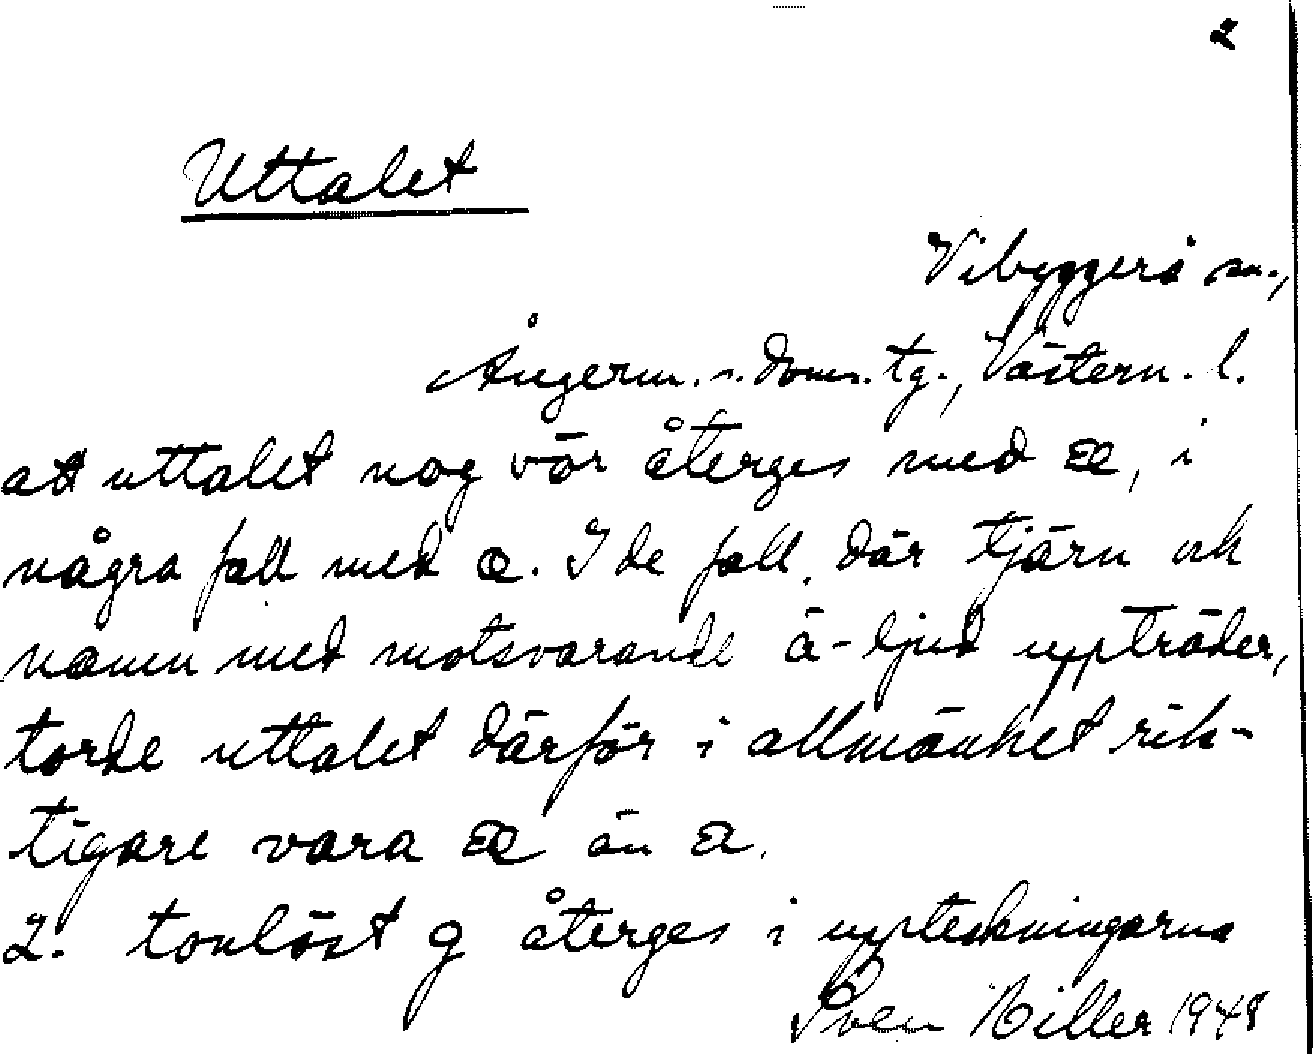 2
Uttalet
Vibyggerå sn.,
Ångerm. s. doms. tg., Västern. l.
att uttalet nog bör återges med æ, i
några fall med a. I de fall, där tjärn och
namn med motsvarande ä-ljud uppträder,
torde uttalet därför i allmänhet rik-
tigare vara æ än a.
2. tonlöst g återges i uppteckningarna
Sven Hiller 1948